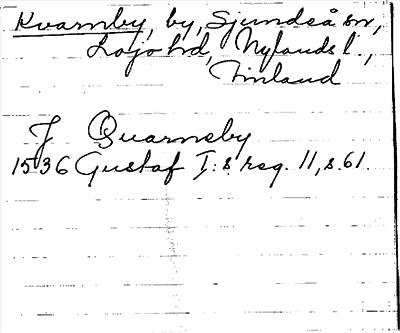 Kvarnby, by, Sjundeå sn,
Lojo hd, Nylands l.,
Finland
J Quarnsby
1536 Gustaf I:s reg. 11, s. 61.